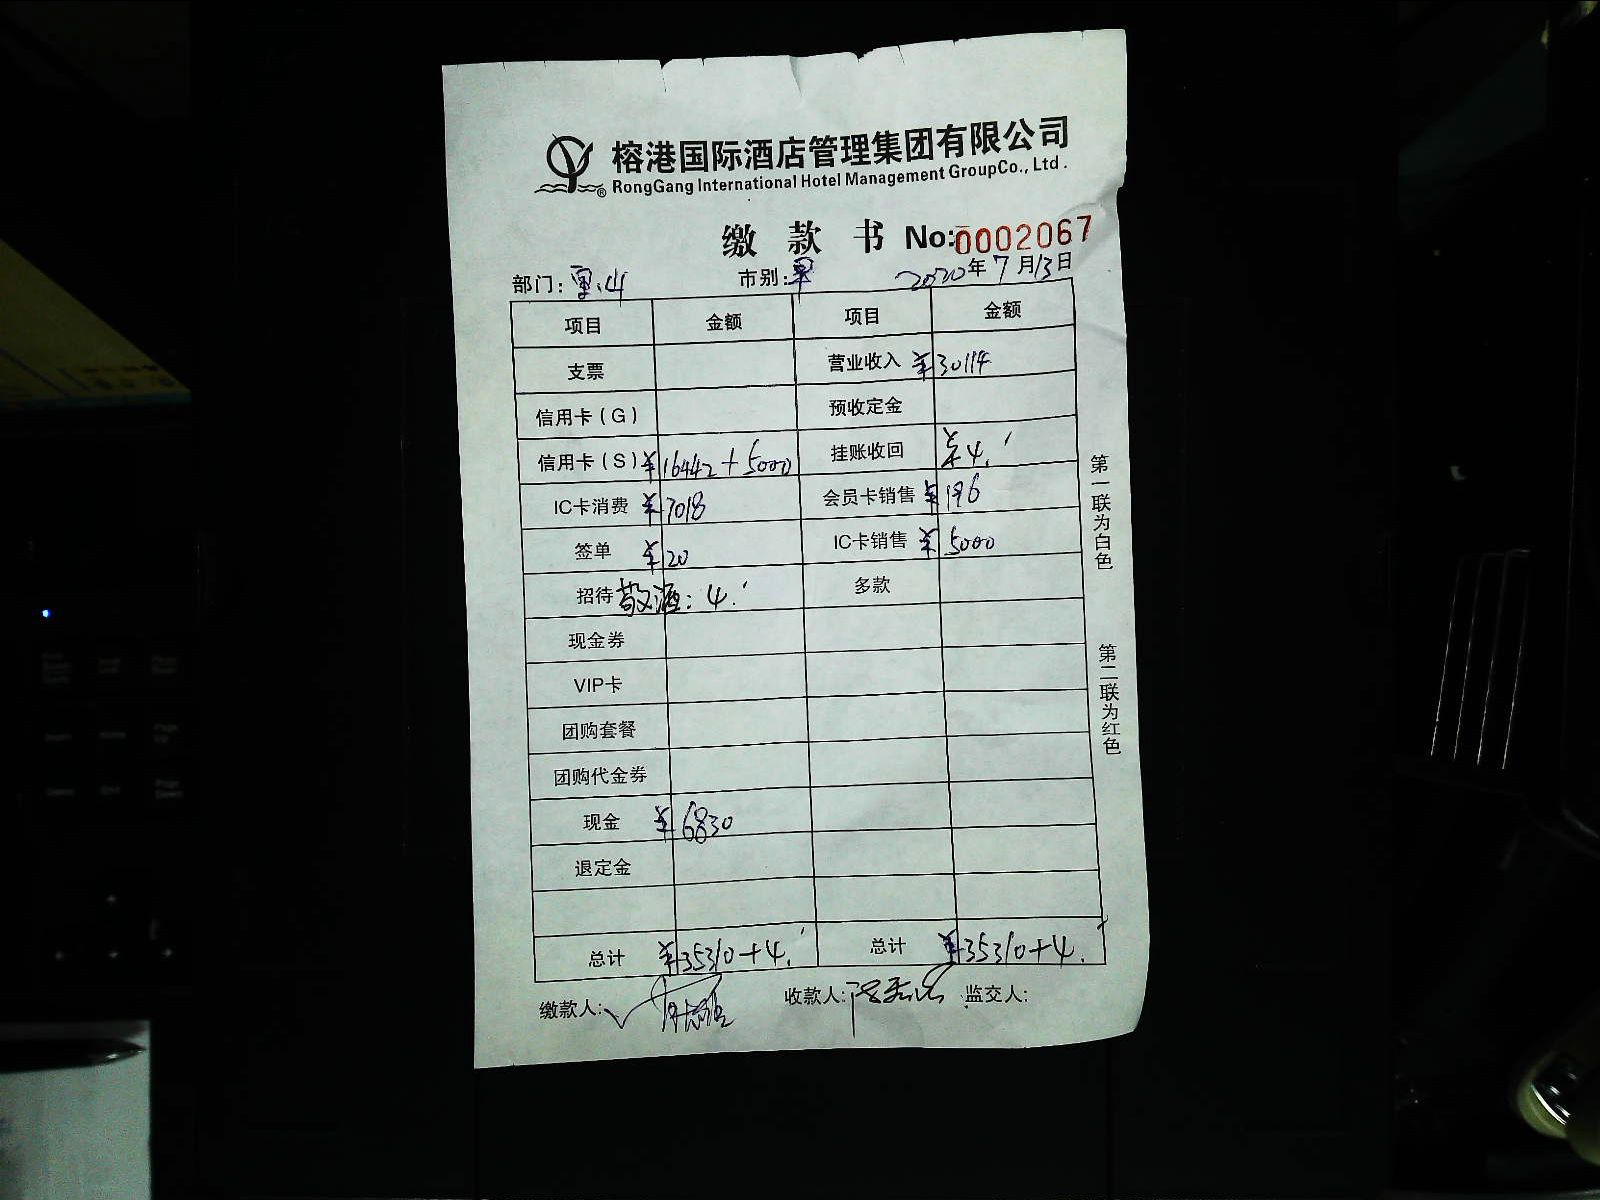 榕港国际酒店管理集团有限公司
RongGang International Hotel Management GroupCo., Ltd.
缴款书 No:0002067
部门: 市别:早 2020年7月13日
项目 金额 项目 金额
支票 营业收入 ¥30114
信用卡(G) 预收定金
信用卡(S) ¥16442+5000 挂账收回 4.
IC卡消费 ¥7018 会员卡销售 ¥196
签单 ¥20 IC卡销售 ¥5000
招待 敬酒:4. 多款
现金券
VIP卡
团购套餐
团购代金券
现金 ¥6830
退定金
总计 ¥35310+4. 总计 ¥35310+4.
缴款人: 收款人: 监交人:
第一联为白色
第二联为红色